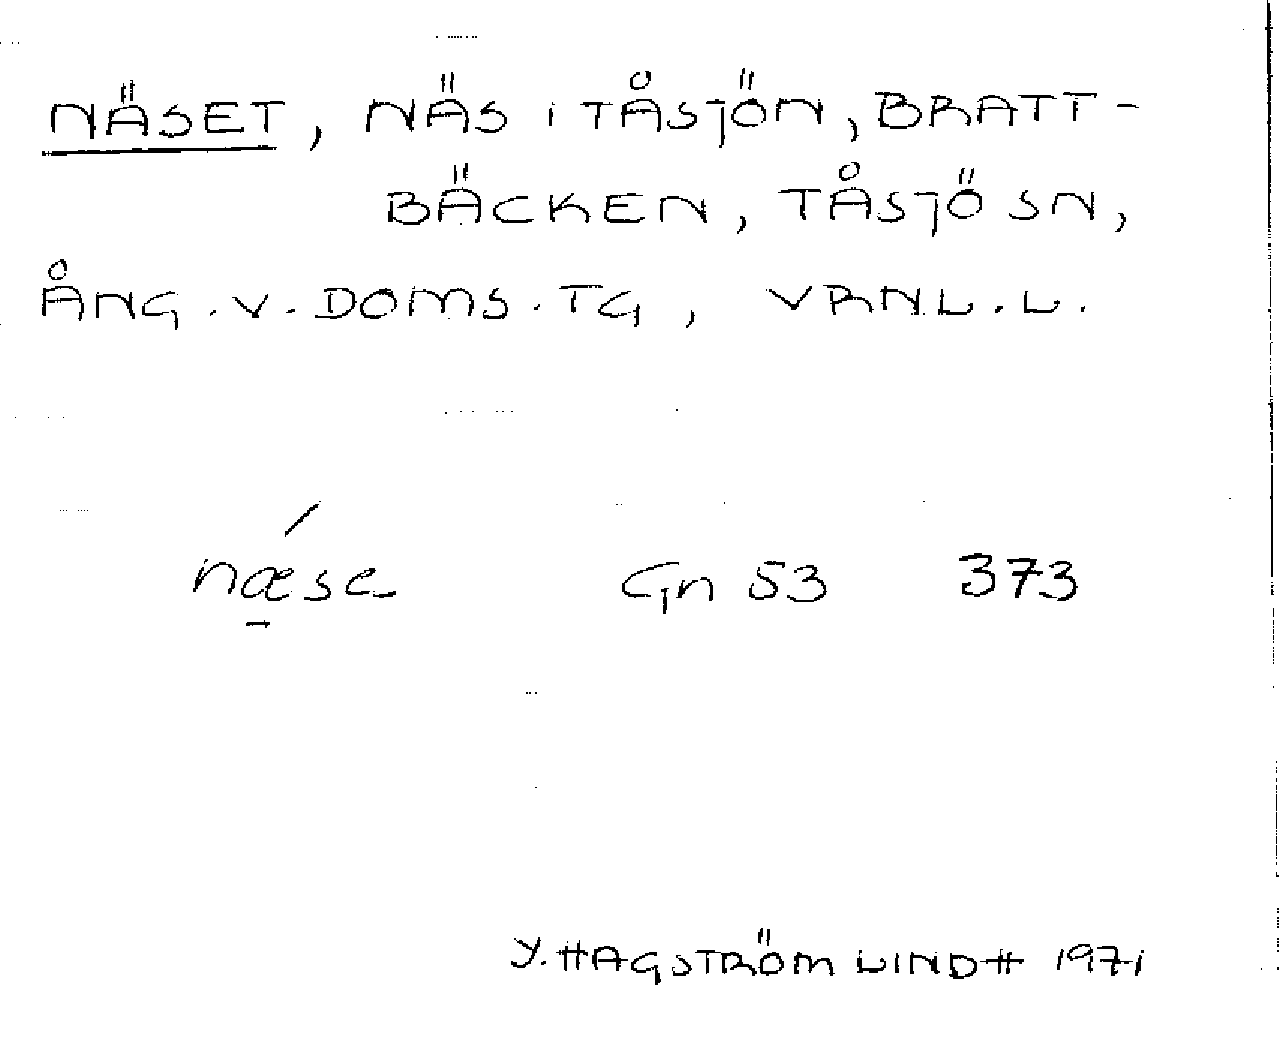 NÄSET, NÄS I TÅSJÖN, BRATT-
BÄCKEN, TÅSJÖ SN,
ÅNG. V. DOMS. TG, VRNL. L.
næse Gn 53 373
Y. HAGSTRÖM LINDH 1971